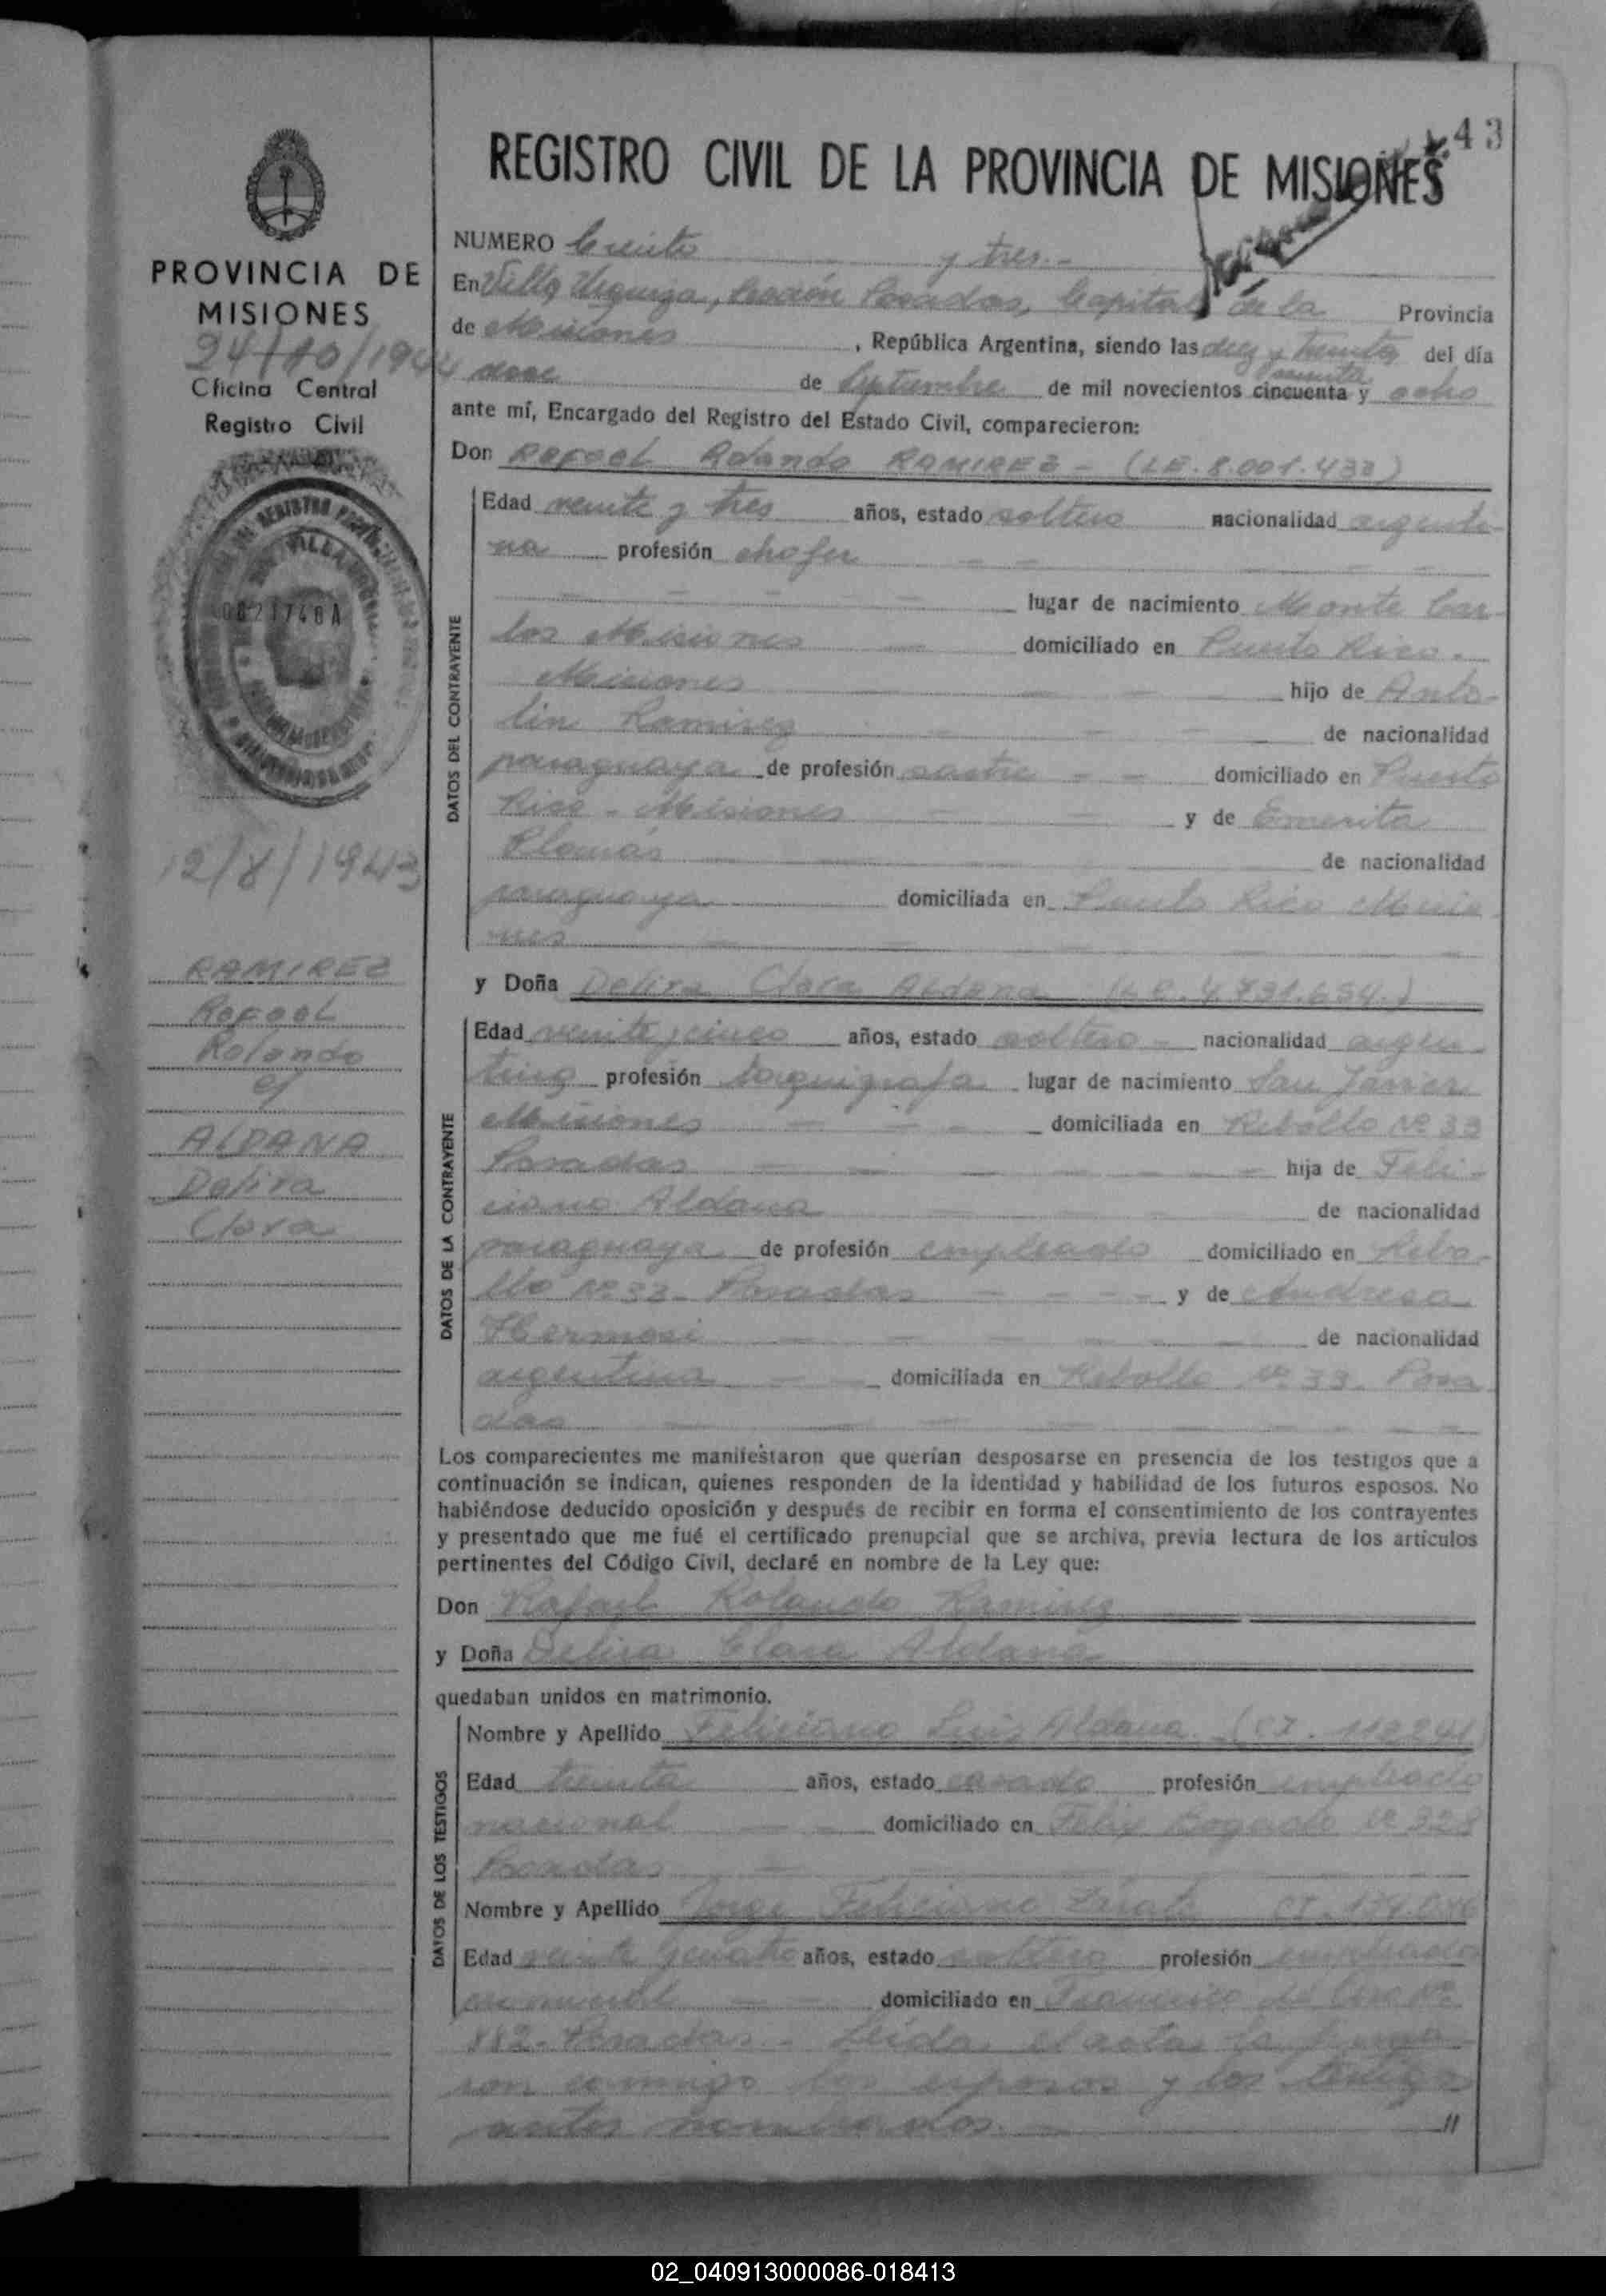 43
REGISTRO CIVIL DE LA PROVINCIA DE MISIONES
PROVINCIA DE
MISIONES
24/10/1944
Oficina Central
Registro Civil
0021746A
12/8/1943
RAMIREZ
Rafael
Rolando
c/
ALDANA
Delira
Clara
NUMERO Cuarenta y tres.-
En Villa Urquiza, Sección Posadas, Capital de la Provincia
de Misiones, República Argentina, siendo las diez y treinta del día
doce de Septiembre de mil novecientos cincuenta y ocho
ante mí, Encargado del Registro del Estado Civil, comparecieron:
Don Rafael Rolando RAMIREZ - (LE. 8.001.433)
DATOS DEL CONTRAYENTE
Edad veinte y tres años, estado soltero nacionalidad argenti-
na profesión chofer
lugar de nacimiento Monte Car-
los Misiones domiciliado en Puerto Rico.
Misiones hijo de Anto-
lin Ramirez de nacionalidad
paraguaya de profesión sastre domiciliado en Puerto
Rico - Misiones y de Emerita
de nacionalidad
paraguaya domiciliada en Puerto Rico Misio
nes
y Doña Delira Clara Aldana
DATOS DE LA CONTRAYENTE
Edad veinte y cinco años, estado soltera nacionalidad argen
tina profesión taquigrafa lugar de nacimiento San Javier
Misiones domiciliada en Rebollo Nº 33
Posadas hija de Feli-
ciano Aldana de nacionalidad
paraguaya de profesión empleado domiciliado en Rebo-
llo Nº 33 - Posadas y de Andresa
Hermosi de nacionalidad
argentina domiciliada en Rebollo Nº 33. Posa
das
Los comparecientes me manifestaron que querían desposarse en presencia de los testigos que a
continuación se indican, quienes responden de la identidad y habilidad de los futuros esposos. No
habiéndose deducido oposición y después de recibir en forma el consentimiento de los contrayentes
y presentado que me fué el certificado prenupcial que se archiva, previa lectura de los artículos
pertinentes del Código Civil, declaré en nombre de la Ley que:
Don Rafael Rolando Ramirez
y Doña Delira Clara Aldana
quedaban unidos en matrimonio.
DATOS DE LOS TESTIGOS
Nombre y Apellido Feliciano Luis Aldana (CI. 112241
Edad treinta años, estado casado profesión empleado
nacional domiciliado en Felix Bogado Nº 328
Posadas
Nombre y Apellido Jorge Feliciano Zarate CI.
Edad veinte y cuatro años, estado soltero profesión empleado
domiciliado en Francisco de Nº
882 - Posadas. - Leída el acta la firma
ron conmigo los esposos y los testigos
antes nombrados. //
02_040913000086-018413